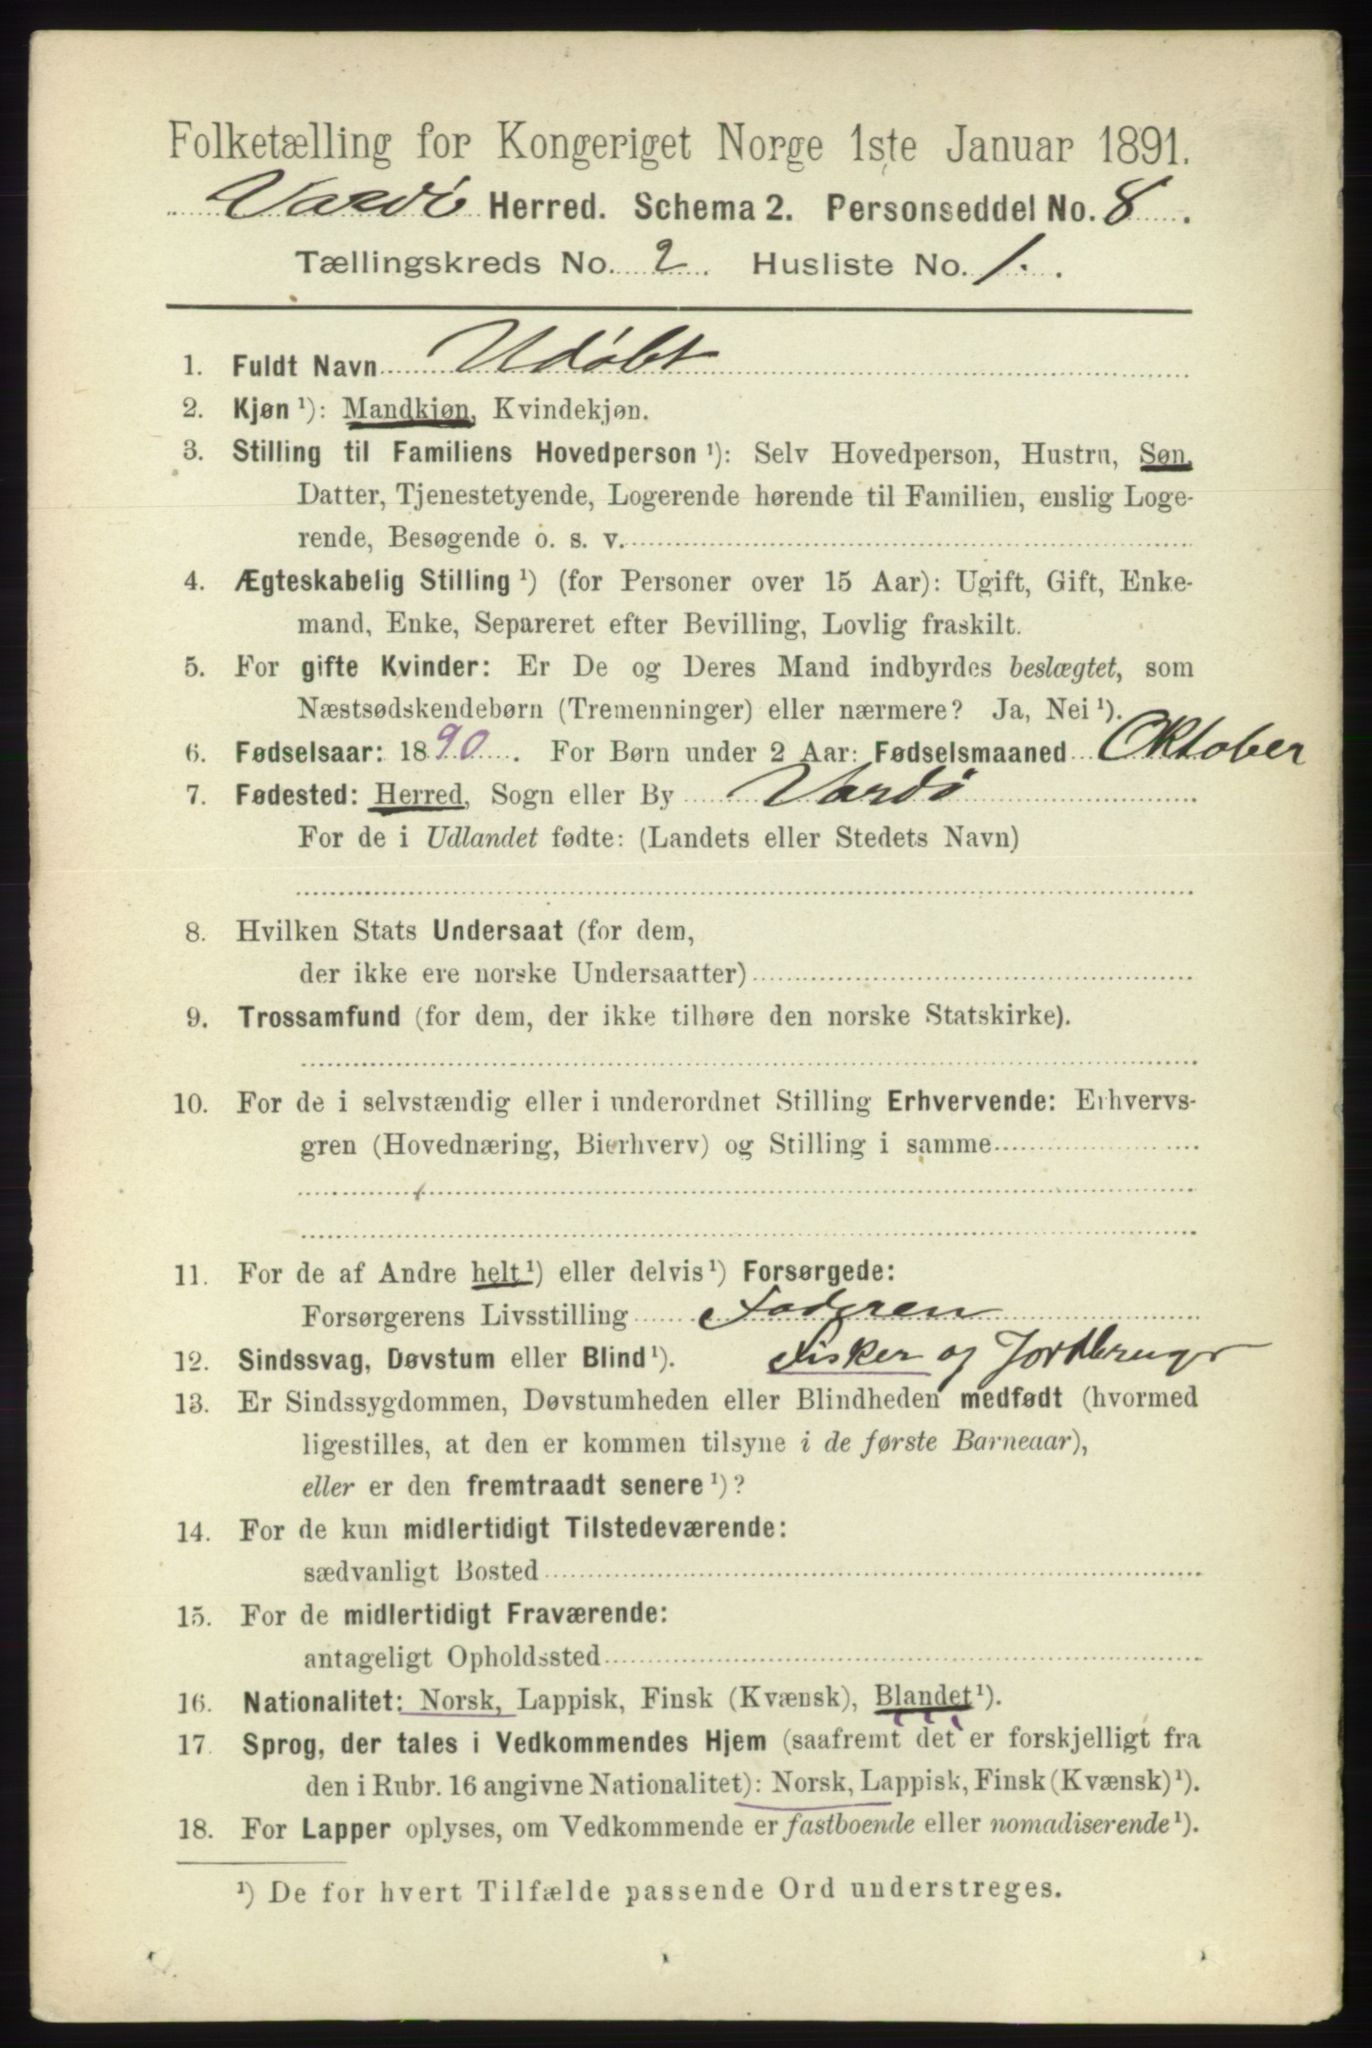 Folketælling for Kongeriget Norge 1ste Januar 1891.
Vardö Herred. Schema 2. Personseddel No. 8.
Tællingskreds No. 2. Husliste No. 1.
1. Fuldt Navn Udøbt
2. Kjøn ¹): Mandkjøn, Kvindekjøn.
3. Stilling til Familiens Hovedperson ¹): Selv Hovedperson, Hustru, Søn,
Datter, Tjenestetyende, Logerende hørende til Familien, enslig Loge-
rende, Besøgende o. s. v.
4. Ægteskabelig Stilling ¹) (for Personer over 15 Aar): Ugift, Gift, Enke-
mand, Enke, Separeret efter Bevilling, Lovlig fraskilt.
5. For gifte Kvinder: Er De og Deres Mand indbyrdes beslægtet, som
Næstsødskendebørn (Tremenninger) eller nærmere? Ja, Nei ¹).
6. Fødselsaar: 1890. For Børn under 2 Aar: Fødselsmaaned Oktober
7. Fødested: Herred, Sogn eller By Vardö
For de i Udlandet fødte: (Landets eller Stedets Navn)
8. Hvilken Stats Undersaat (for dem,
der ikke ere norske Undersaatter)
9. Trossamfund (for dem, der ikke tilhøre den norske Statskirke).
10. For de i selvstændig eller i underordnet Stilling Erhvervende: Erhvervs-
gren (Hovednæring, Bierhverv) og Stilling i samme
11. For de af Andre helt ¹) eller delvis ¹) Forsørgede:
Forsørgerens Livsstilling Faderen
12. Sindssvag, Døvstum eller Blind ¹). Fisker og Jordbruger
13. Er Sindssygdommen, Døvstumheden eller Blindheden medfødt (hvormed
ligestilles, at den er kommen tilsyne i de første Barneaar),
eller er den fremtraadt senere ¹)?
14. For de kun midlertidigt Tilstedeværende:
sædvanligt Bosted
15. For de midlertidigt Fraværende:
antageligt Opholdssted
16. Nationalitet: Norsk, Lappisk, Finsk (Kvænsk), Blandet ¹).
17. Sprog, der tales i Vedkommendes Hjem (saafremt det er forskjelligt fra
den i Rubr. 16 angivne Nationalitet): Norsk, Lappisk, Finsk (Kvænsk) ¹).
18. For Lapper oplyses, om Vedkommende er fastboende eller nomadiserende ¹).
¹) De for hvert Tilfælde passende Ord understreges.